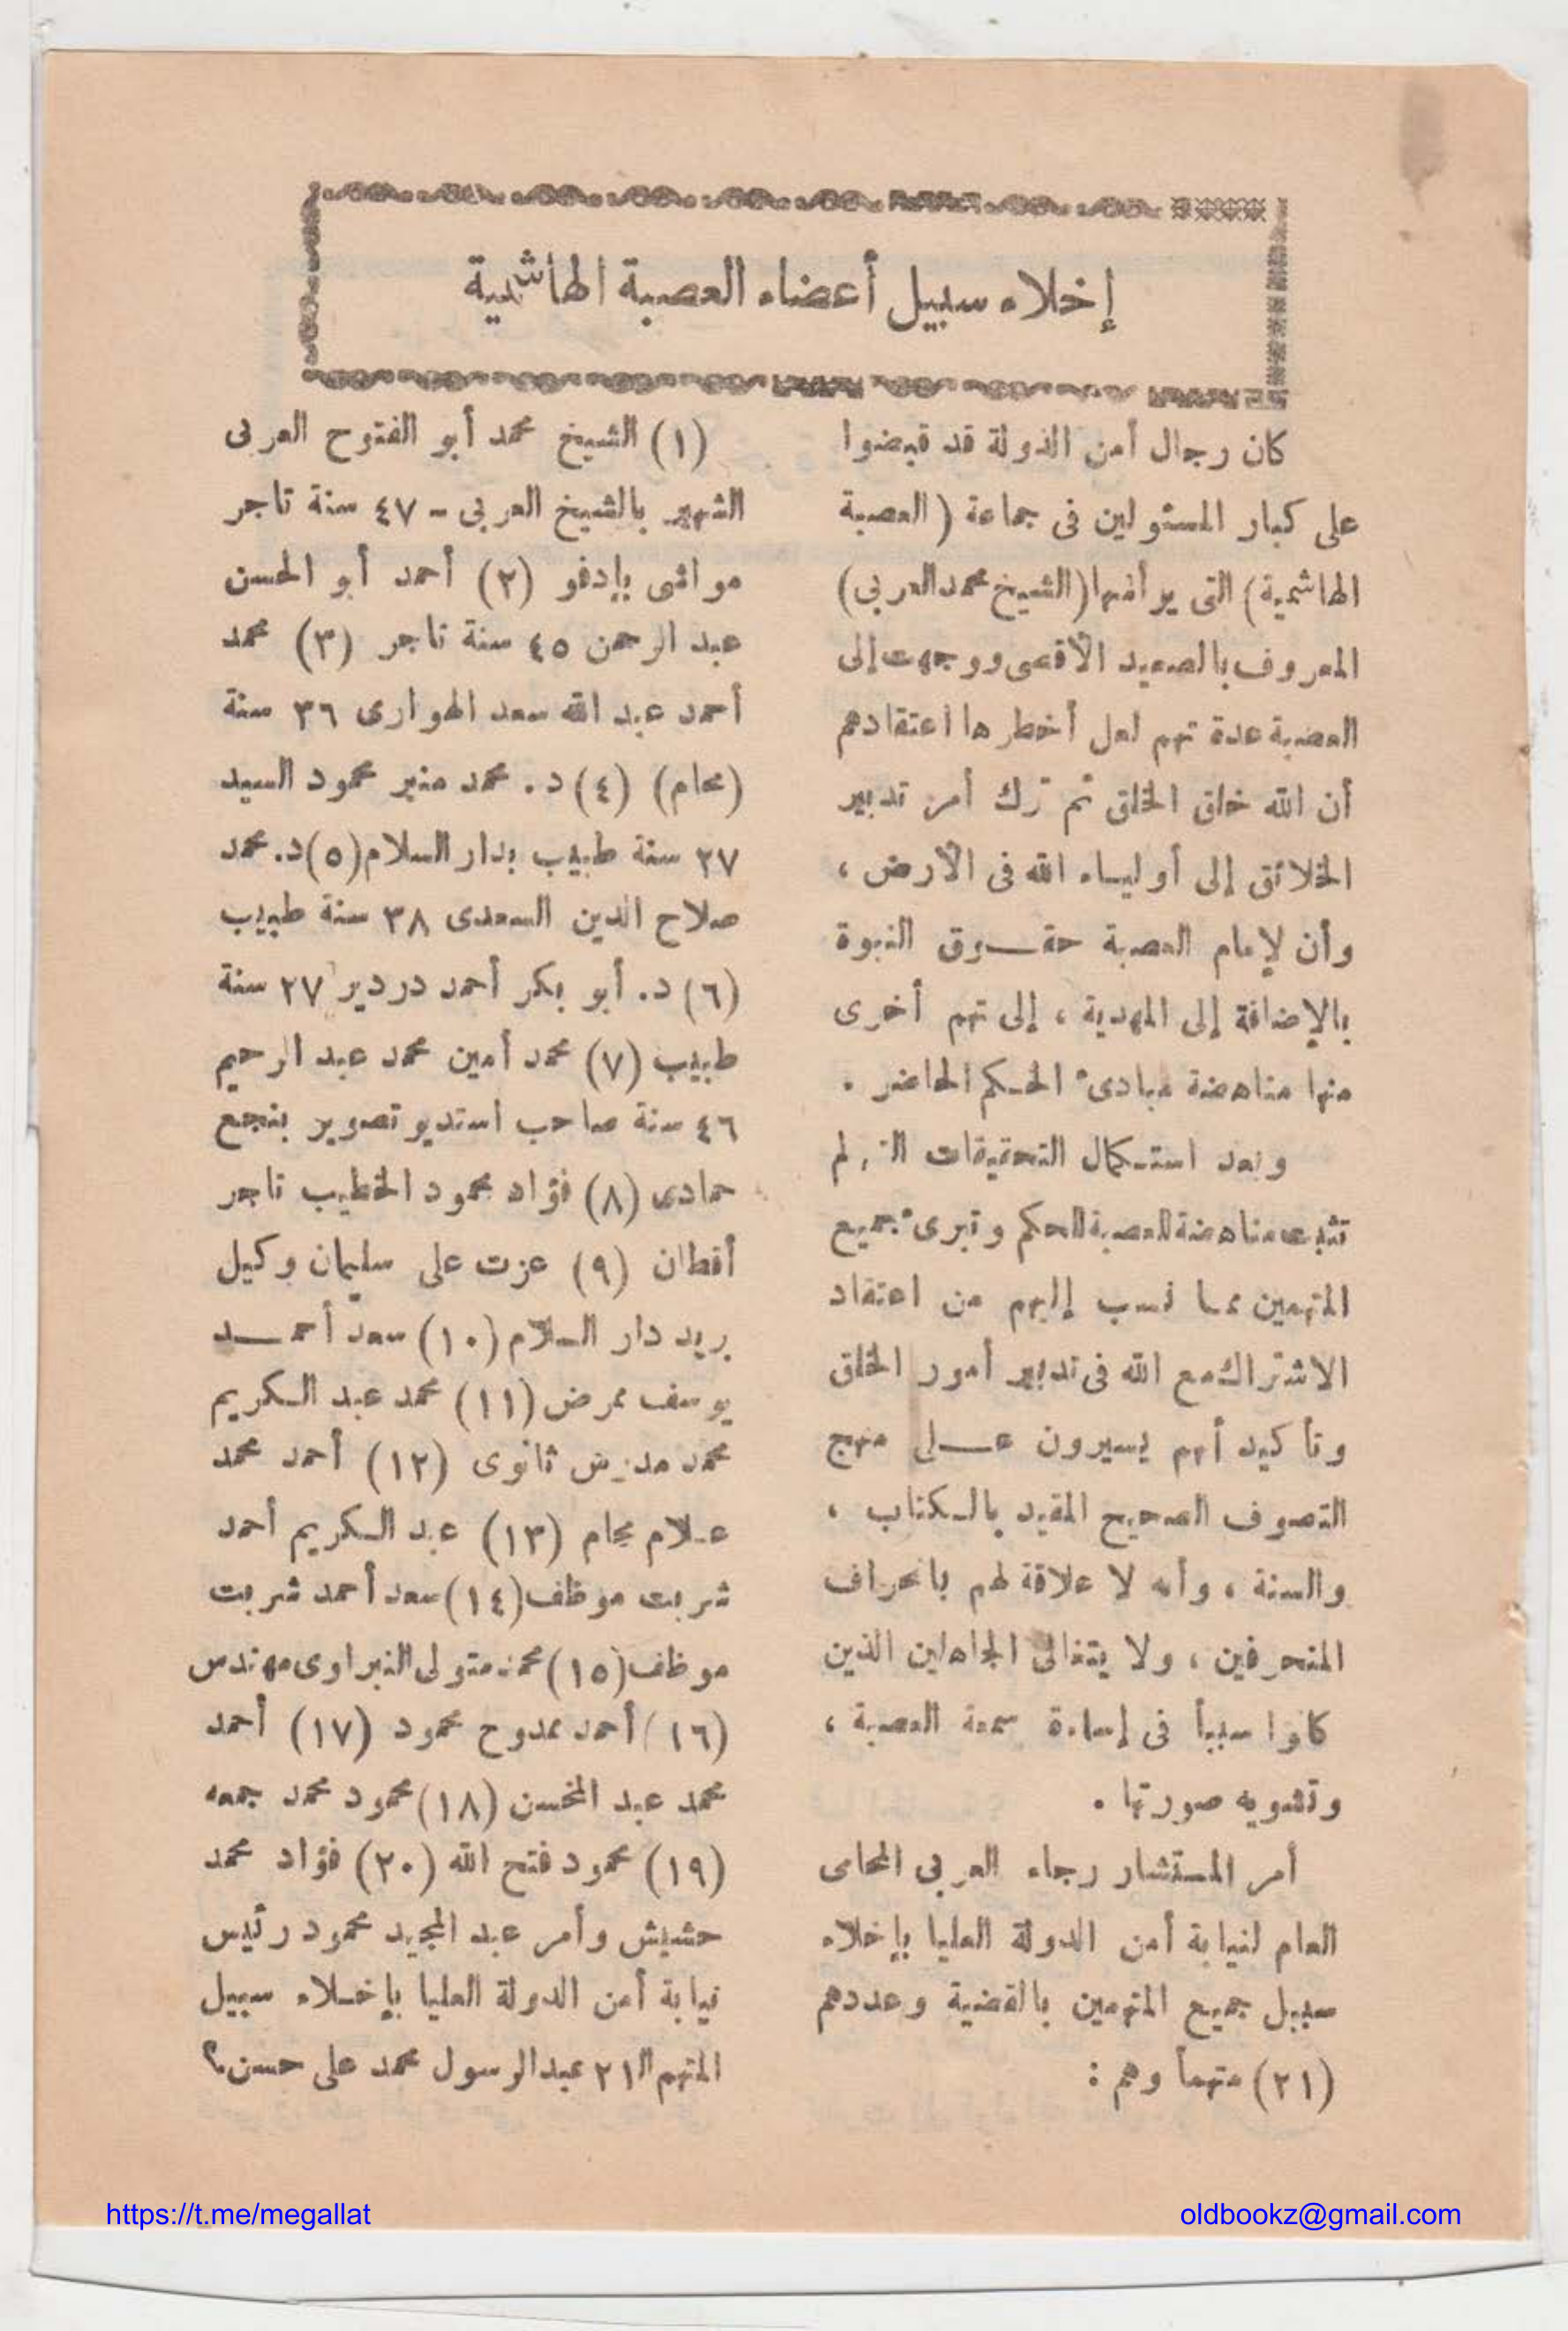 إخلاء سبيل أعضاء العصبة الهاشمية
كان رجال أمن الدولة قد قبضوا
على كبار المسئولين فى جماعة (العصبة
الهاشمية) التى يرأسها (الشيخ محمد العربى)
المعروف بالصعيد الأقصى ووجهت إلى
العصبة عدة تهم لعل أخطرها اعتقادهم
أن الله خلق الخلق ثم ترك أمر تدبير
الخلائق إلى أولياء الله فى الأرض ،
وأن لإمام العصبة حقوق النبوة
بالإضافة إلى المهدية ، إلى تهم أخرى
منها مناهضة مبادىء الحكم الحاضر .
وبعد استكمال التحقيقات التى لم
تثبت مناهضة العصبة للحكم وتبرىء جميع
المتهمين مما نسب إليهم من اعتقاد
الاشتراك مع الله فى تدبير أمور الخلق
وتأكيد أنهم يسيرون على منهج
التصوف الصحيح المقيد بالكتاب ،
والسنة ، وأنه لا علاقة لهم بانحراف
المنحرفين ، ولا بتغالى الجاهلين الذين
كانوا سبباً فى إساءة سمعة العصبة ،
وتشويه صورتها .
أمر المستشار رجاء العربى المحامى
العام لنيابة أمن الدولة العليا بإخلاء
سبيل جميع المتهمين بالقضية وعددهم
(٢١) متهماً وهم :
(١) الشيخ محمد أبو الفتوح العربى
الشهير بالشيخ العربى - ٤٧ سنة تاجر
مواشى بإدفو (٢) أحمد أبو الحسن
عبد الرحمن ٤٥ سنة تاجر (٣) محمد
أحمد عبد الله سعد الهوارى ٣٦ سنة
(محام) (٤) د. محمد منير محمود السيد
٢٧ سنة طبيب بدار السلام (٥) د. محمد
صلاح الدين السعدى ٣٨ سنة طبيب
(٦) د. أبو بكر أحمد دردير ٢٧ سنة
طبيب (٧) محمد أمين محمد عبد الرحيم
٤٦ سنة صاحب استديو تصوير بنجع
حمادى (٨) فؤاد محمود الخطيب تاجر
أقطان (٩) عزت على سليمان وكيل
بريد دار السلام (١٠) سعد أحمد
يوسف ممرض (١١) محمد عبد الكريم
محمد مدرس ثانوى (١٢) أحمد محمد
علام محام (١٣) عبد الكريم أحمد
شربت موظف (١٤) سعد أحمد شربت
موظف (١٥) محمد متولى النبراوى مهندس
(١٦) أحمد ممدوح محمود (١٧) أحمد
محمد عبد المحسن (١٨) محمود محمد جمعه
(١٩) محمود فتح الله (٢٠) فؤاد محمد
حشيش وأمر عبد المجيد محمود رئيس
نيابة أمن الدولة العليا بإخلاء سبيل
المتهم الـ ٢١ عبد الرسول محمد على حسن.؟
https://t.me/megallat
oldbookz@gmail.com